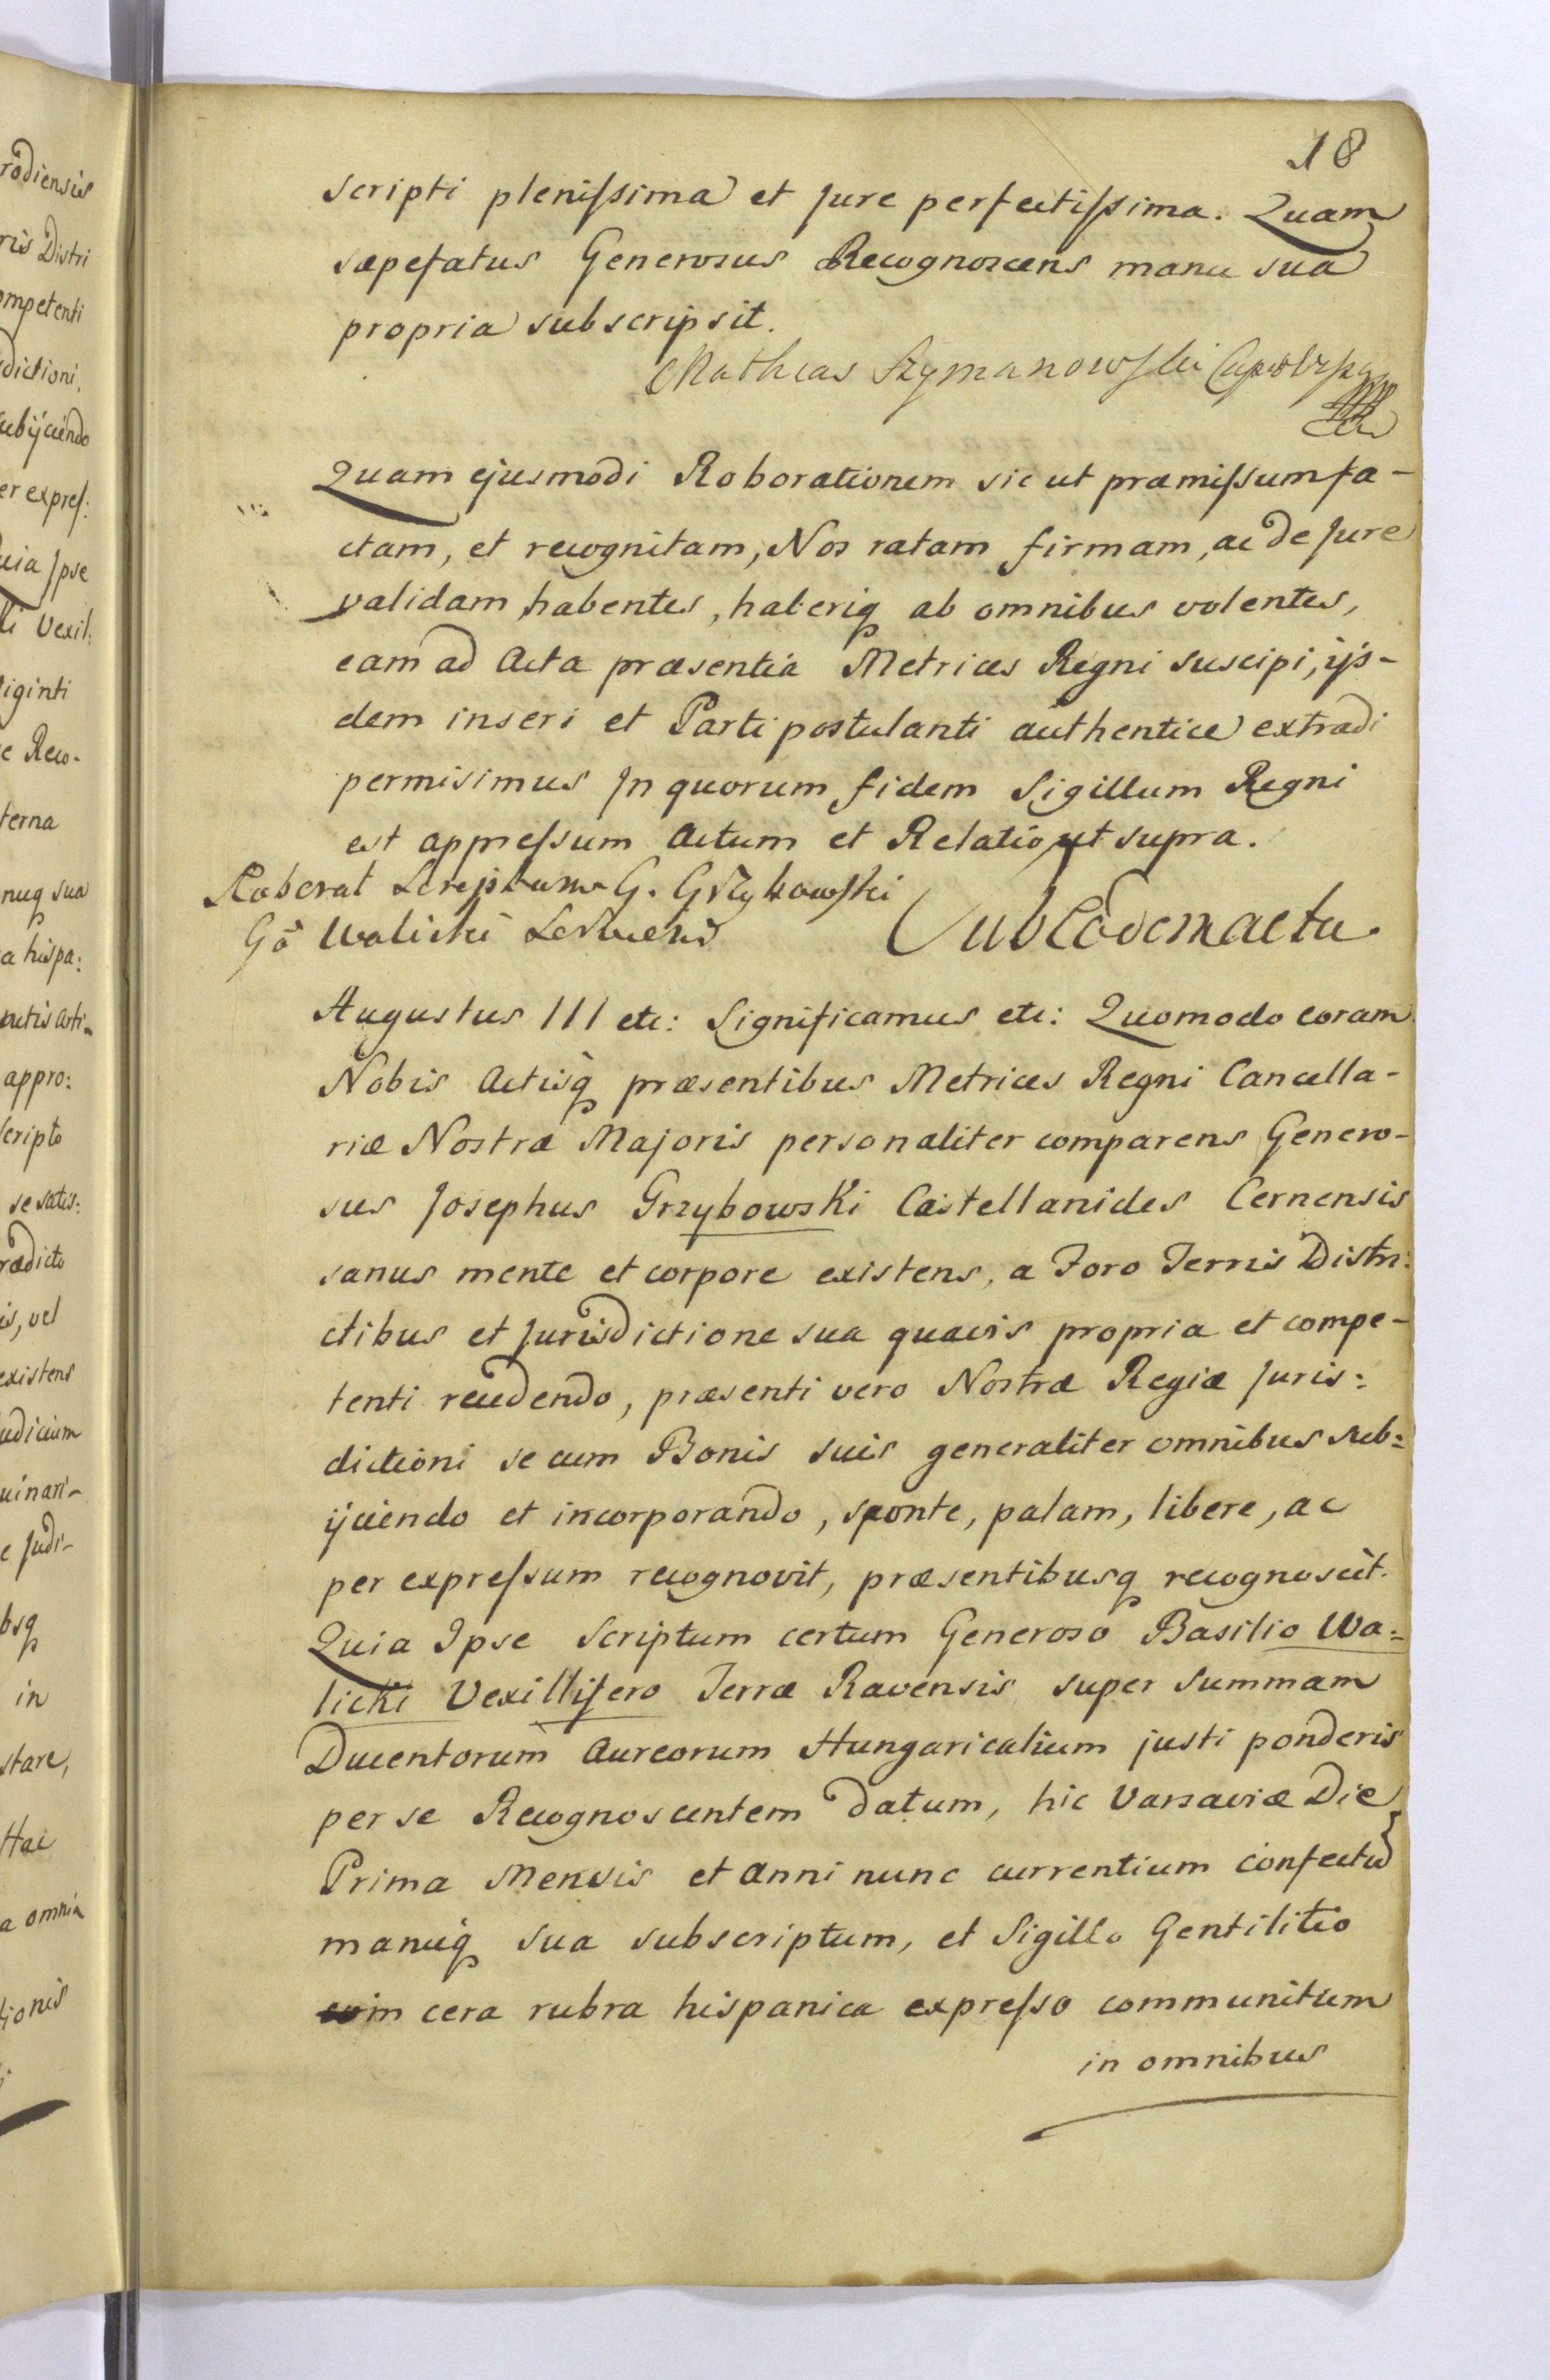 18
scripti plenissima et Jure perfectissima. Quam
sæpefatus Generosus Recognoscens manu sua
propria subscripsit.
Mathias Szymanowski
Quam ejusmodi Roborationem sic ut præmissum fa-
ctam, et recognitam, Nos ratam firmam, ac de Jure
validam habentes, haberiq ab omnibus volentes,
eam ad Acta præsentia Metrices Regni suscipi, ijs-
dem inseri et Parti postulanti authentice extradi
permisimus In quorum fidem Sigillum Regni
est appressum Actum et Relatio ut supra.
Roborat Scriptum G. Grzybowski
Gō Walicki
Sub Eodem actu.
Augustus III etc: Significamus etc: Quomodo coram
Nobis Actisq præsentibus Metrices Regni Cancella-
riæ Nostræ Majoris personaliter comparens Genero-
sus Josephus Grzybowski Castellanides Cernensis
sanus mente et corpore existens, a Foro Terris Distri:
ctibus et Jurisdictione sua quavis propria et compe-
tenti recedendo, præsenti vero Nostræ Regiæ Juris:
dictioni se cum Bonis suis generaliter omnibus sub=
ijciendo et incorporando, sponte, palam, libere, ac
per expressum recognovit, præsentibusq recognoscit.
Quia Ipse Scriptum certum Generoso Basilio Wa=
licki Vexillifero Terræ Ravensis super Summam
Ducentorum Aureorum Hungaricalium justi ponderis
per se Recognoscentem datum, hic Varsaviæ Die
Prima Mensis et Anni nunc currentium confectū
manuq sua subscriptum, et Sigillo Gentilitio
in cera rubra hispanica expresso communitum
in omnibus